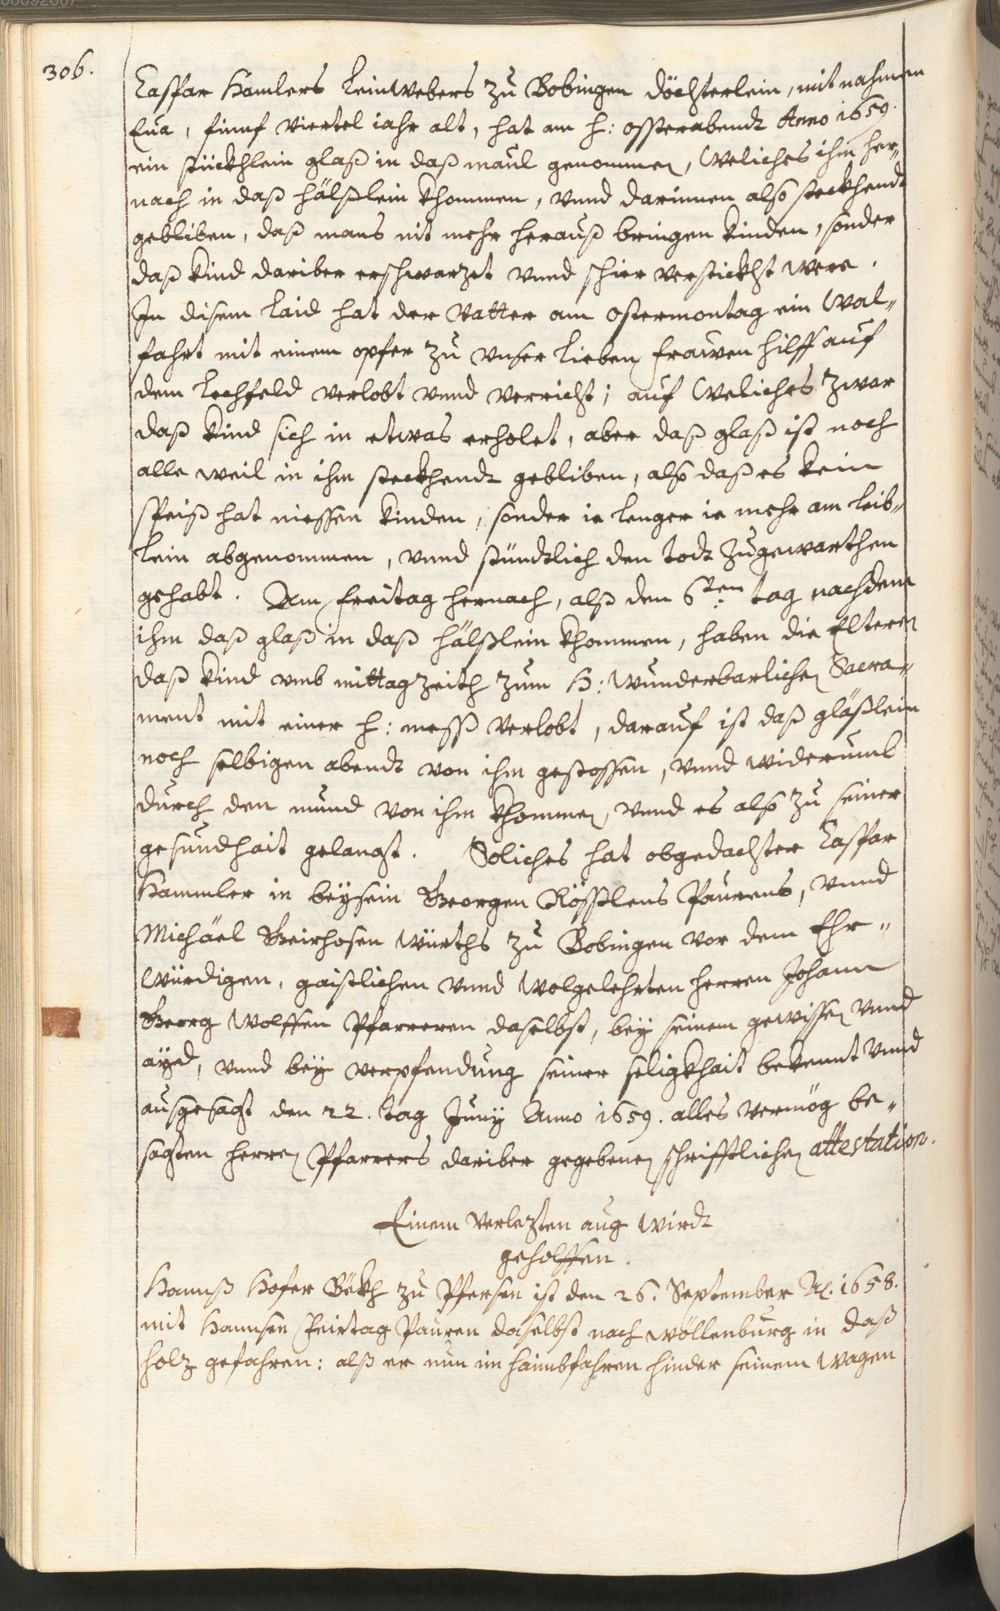 306.
Caspar Hamlers Leinwebers zu Bobingen döchterlein, mit nahmen
Eua, finnf viertel iahr alt, hat am h: ossterabendt Anno 1659.
ein stückhlein glaß in daß maul genommen, weliches ihm her„
nach in daß hälßlein khommen, vnnd darinnen also steckhendt
gebliben, daß mans nit mehr herauß bringen kinden, sonder
daß kind dariber erschwarzet vnnd schier verstickht were.
In disem laid hat der Vatter am ostermontag ein Wal„
fahrt mit einem opfer zu vnser lieben frawen hilff auf
dem Lechfeld verlobt vnnd verricht; auf weliches zwar
daß kind sich in etwas erholet, aber daß glaß ist noch
alle weil in ihm steckhendt gebliben, also daß es kein
speiß hat niessen kinden, sonder ie lenger ie mehr am leib„
lein abgenommen, vnnd stündtlich den todt zugewarthen
gehabt. Am freitag hernach, alß dem 6ten tag nachdem
ihm daß glaß in daß hälßlein khommen, haben die Elteren
daß kind vmb mittagzeith zum H: Wunderbarlichen Sacra„
ment mit einer h: mess verlobt, darauf ist daß gläßlein
noch selbigen abendt von ihm gestossen, vnnd widerumb
durch den mund von ihm khommen, vnnd es also zu seiner
gesundhait gelangt. Soliches hat obgedachter Caspar
Hammler in beysein Georgen Rössleins Paurens, vnnd
Michäel Geirhosen Würths zu Bobingen vor dem Ehr„
würdigen, gaistlichen vnnd wolgelehrten herren Johann
Georg Wolffen Pfarreren daselbst, bey seinem gewissen vnnd
ayd, vnnd bey verpfendung seiner seligkhait bekennt vnnd
ausgesagt den 22. tag Juny Anno 1659. alles vermög be„
sagten herren Pfarrers dariber gegebenen schrifftlichen attestation.
Einem verlezten aug wirdt
geholffen.
Hannß Hofer Bekh zu Pfersen ist den 26. September A. 1658.
mit Hannsen Feirtag Pauren daselbst nach Wöllenburg in daß
holz gefahren: alß er nun im haimbfahren hinder seinem wagen